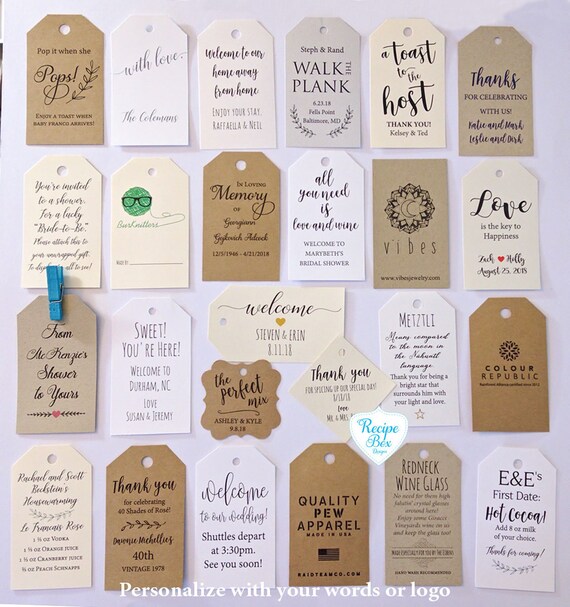 Pop it when she
Pops!
Enjoy a toast when
baby Franco arrives!
with love,
The Colemans
Welcome to our
home away
from home
ENJOY YOUR STAY,
RAFFAELLA & NEIL
Steph & Rand
WALK
THE
PLANK
6.23.18
Fells Point
Baltimore, MD
a toast
to
the
host
THANK YOU!
Kelsey & Ted
Thanks
FOR CELEBRATING
WITH US!
Katie and Mark
Leslie and Dirk
You're invited
to a shower.
For a lucky
"Bride-to-Be".
Please attach this to
your unwrapped gift.
OurKnitters
MADE BY
In Loving
Memory
of
Georgiann
12/5/1946 - 4/21/2018
all
you need
is
love and wine
WELCOME TO
MARYBETH'S
BRIDAL SHOWER
vibes
www.vibesjewelry.com
Love
is the key to
Happiness
Zach Holly
August 25, 2018
From
Shower
to Yours
SWEET!
YOU'RE HERE!
WELCOME TO
DURHAM, NC
LOVE
SUSAN & JEREMY
welcome
STEVEN & ERIN
8.11.18
the
perfect
mix
ASHLEY & KYLE
9.8.18
Thank you
FOR SPICING UP OUR SPECIAL DAY!
Love
METZTLI
Means compared
to the moon in
the Nahuatl
language.
Thank you for being a
bright star that
surrounds him with
your light and love.
COLOUR
REPUBLIC
Recipe
Box
Designs
Rachael and Scott
Beckstein's
Housewarming
Le Francois Rose
1 ½ oz Vodka
1 ½ oz Orange juice
1 ½ oz Cranberry juice
½ oz Peach Schnapps
Thank you
for celebrating
40 Shades of Rosé!
40th
VINTAGE 1978
Welcome
to our wedding!
Shuttles depart
at 3:30pm.
See you soon!
QUALITY
PEW
APPAREL
MADE IN USA
RAIDTEAMCO.COM
REDNECK
WINE GLASS
No need for them high
falutin' crystal glasses
around here!
Enjoy some
Vineyards wine on us
and keep the glass too!
HAND WASH RECOMMENDED
E&E's
First Date:
Hot Cocoa!
Add 8 oz milk
of your choice.
Thanks for coming!
Personalize with your words or logo